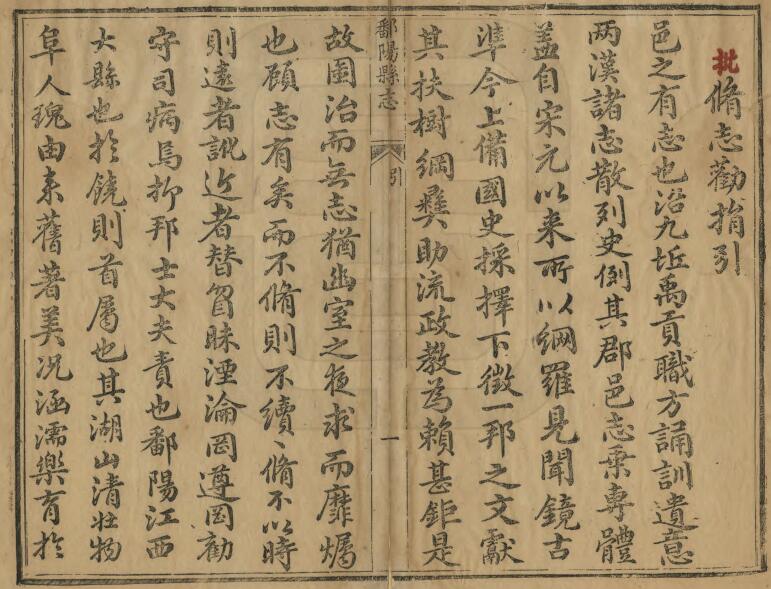 批
脩志勸捐引
邑之有志也沿九丘禹貢職方誦訓遺意
两漢諸志散列史倒其郡邑志乗専體
盖自宋元以来所以綱羅見聞鏡古
準今上備國史採擇下徴一邦之文獻
其扶樹綱彛助流政教為頼甚鉅是
鄱陽縣志
引
一
故圍治而無志猶幽室之夜求而靡燭
也顧志有矣而不脩則不續〻脩不以時
則逺者訛近者替貿昧湮淪罔遵罔勸
守司病焉抑邦士大夫責也鄱陽江西
大縣也扵饒則首属也其湖山清壮物
阜人瑰由来舊著美况涵濡樂育扵